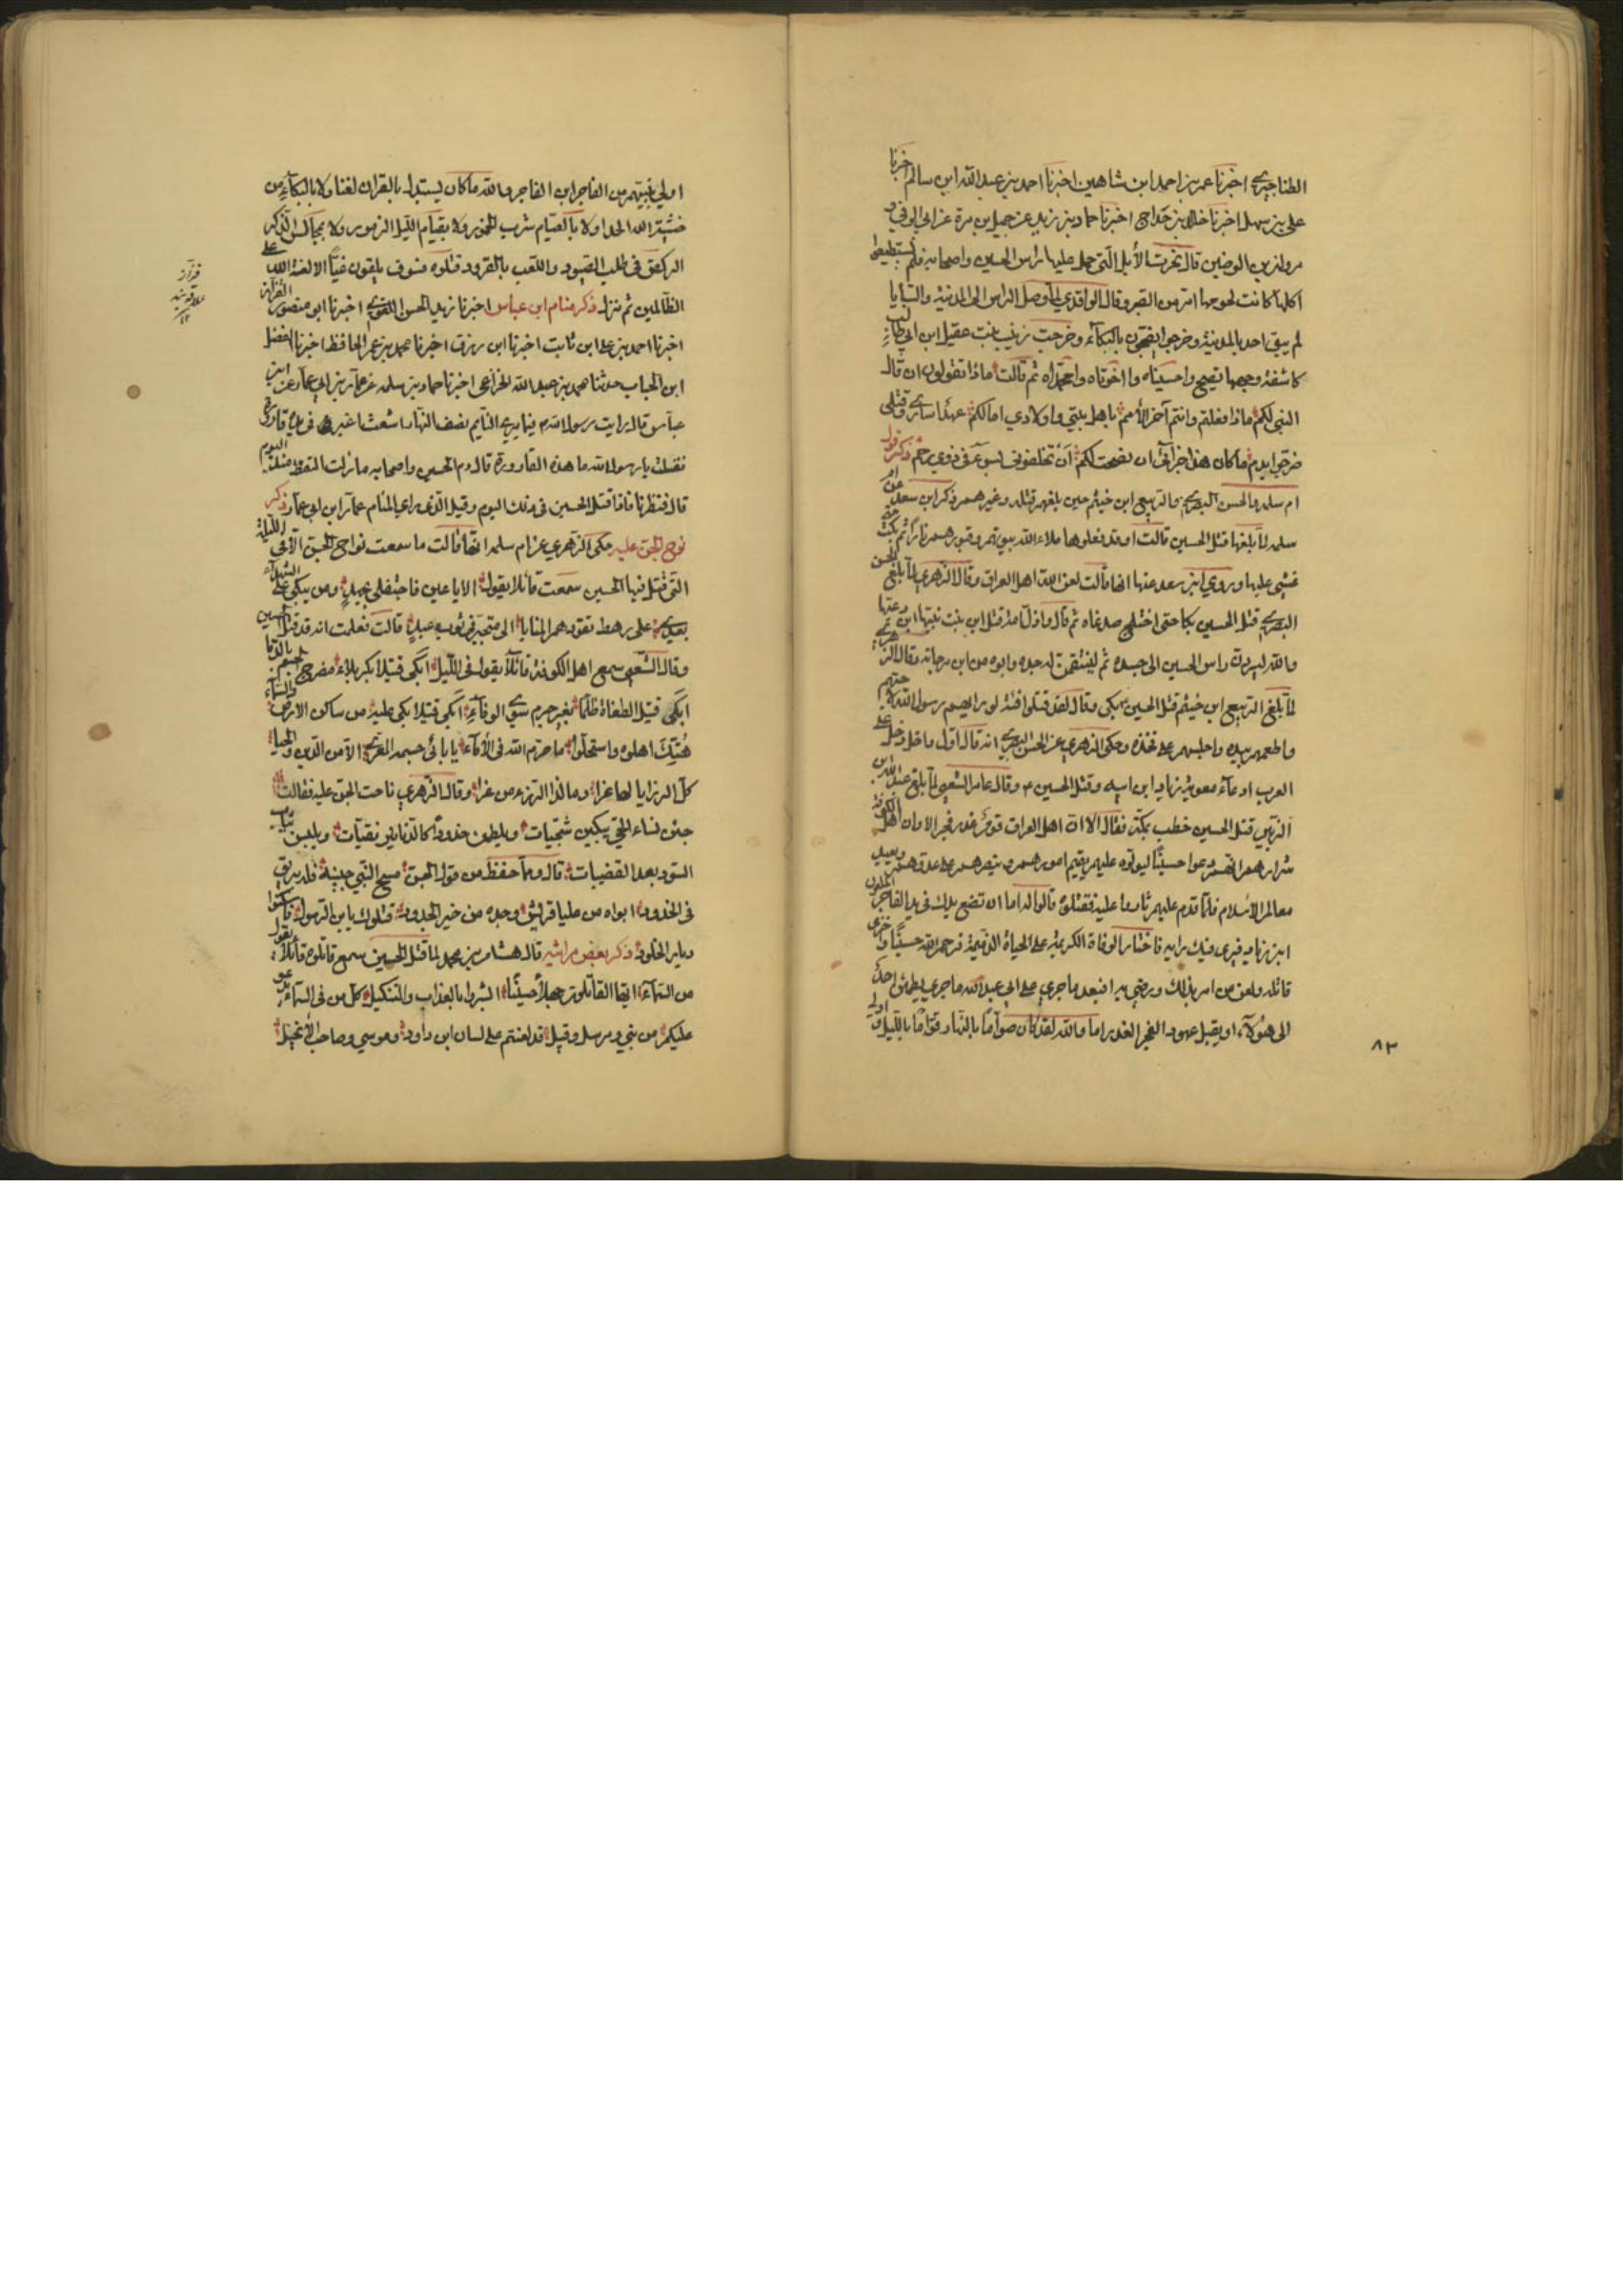 الطناجيري اخبرنا عمر بن احمد ابن شاهين اخبرنا احمد بن عبد الله ابن سالم اخبرنا
علي بن سهل اخبرنا خالد بن خداج اخبرنا حماد بن زيد عن جميل بن مرة عن ابي الوفي و
مروان بن الوضين قال نحرت الأبل التي حمل عليها راس الحسين واصحابه فلم يستطيعوا
اكلها كانت لحومها امر من الصبر وقال الواقدي لما وصل الراس الى المدينة والسبايا
لم يبق احد بالمدينة وخرجوا يضجون بالبكاء وخرجت زينب بنت عقيل ابن ابي طالب
كاشفة وجهها تصيح واحسيناه وا اخوتاه وامحمداه ثم قالت ماذا تقولون ان قال
النبي لكم ماذا فعلتم وانتم آخر الأمم باهل بيتي واولادي اما لكم عهد اساري وقتلى
ضرجوا بدم ما كان هذا جزائي ان نصحت لكم أن تخلفوني بسوء في ذوي رحم ذكر قول
ام سلمه والحسن البصري والربيع ابن خيثم حين بلغهم قتله وغيرهم ذكر ابن سعد عن ام
سلمه لما بلغها قتل الحسين قالت او قد فعلوها ملاء الله بيوتهم وقبورهم نارا ثم بكت حتى
غشي عليها وروي ابن سعد عنها انها قالت لعن الله اهل العراق وقال الزهري لما بلغ الحسن
البصري قتل الحسين بكا حتى اختلج صدغاه ثم قال واذل امة قتل ابن بنت نبيها ابن دعيها
والله ليردن راس الحسين الى جسده ثم لينتقمن له جده وابوه من ابن مرجانه وقال الزهري
لما بلغ الربيع ابن خيثم قتل الحسين بكى وقال لقد قتلوا فتية لو راهم رسول الله لاحبهم
واطعمهم بيده واجلسهم على فخذه وحكى الزهري عن الحسن البصري انه قال اول ما دخل على
العرب ادعاء معوية زياد ابن ابيه وقتل الحسين ع وقال عامر الشعبي لما بلغ عبد الله بن
الزبير قتل الحسين خطب بمكة فقال الا ان اهل العراق قوم غدر فجر الا وان اهل الكوفة
شرارهم انهم دعوا حسينا ليولوه عليهم يقيم امورهم وينصرهم على عدوهم ويعيد
معالم الأسلام فلما قدم عليهم ثاروا عليه فقتلوه قالوا له اما ان تضع يدك في يد الفاجر الملعون
ابن زياد فيرى فيك رايه فاختار الوفاة الكريمة على الحياة الذميمة فرحم الله حسينا واخزى
قاتله ولعن من امر بذلك ورضي به افبعد ما جرى على ابي عبد الله ما جرى يطمئن احد
الى هؤلاء او يقبل عهود الفجر الغدر اما والله لقد كان صواما بالنهار قواما بالليل و اولى
٨٣
اولي بنبيهم من الفاجر ابن الفاجر والله ما كان يستبدل بالقران الغنا ولا بالبكاء من
خشية الله الحدا ولا بالصيام شرب الخمور ولا بقيام الليل الزمور ولا بمجالس الذكر
الركض في طلب الصيود واللعب بالقرود قتلوه فسوف يلقون غيا الا لعنة الله على
الظالمين ثم نزل ذكر منام ابن عباس اخبرنا زيد الحسن اللغوي اخبرنا ابو منصور القزاز
اخبرنا احمد بن على ابن ثابت اخبرنا ابن رزق اخبرنا محمد بن عمر الحافظ اخبرنا الفضل
ابن الحباب حدثنا محمد بن عبد الله الخزاعي اخبرنا حماد بن سلمه عن عمار بن ابي عمار عن ابن
عباس قال رايت رسول الله م فيما يري النايم نصف النهار اشعث اغبر في يده قارورة
فقلت يا رسول الله ما هذه القارورة قال دم الحسين واصحابه ما زلت التقطه منذ اليوم
قال فنظرنا فاذا قتل الحسين في ذلك اليوم وقيل الذي راي المنام عمار ابن ابي عمار ذكر
نوح الجن عليه حكى الزهري عن ام سلمه انها قالت ما سمعت نواح الجن الا في الليلة
التي قتل فيها الحسين سمعت قائلا يقول الا يا عين فاحتفلي بجهد ومن يبكي على الشهداء
بعدي على رهط تقودهم المنايا الى متجبر في ثوب عبد قالت فعلمت انه قد قتل الحسين
وقال الشعبي سمع اهل الكوفة قائلا يقول في الليل ابكي قتيلا بكربلاء مضرج الجسم بالدماء
ابكي قتيل الطغاة ظلما بغير جرم سوي الوفاء ابكي قتيلا بكى عليه من ساكن الارض والسماء
هتك اهلوه واستحلوا ما حرم الله في الأماء يا بابي جسمه المعري الا من الدين والحيا
كل الرزايا لها عزا وما لذا الرزء من عزا وقال الزهري ناحت الجن عليه فقالت
جئن نساء الجن يبكين شجيات ويلطمن خدودا كالدنانير نقيات ويلبسن ثياب
السود بعد القصبيات قال ومما حفظ من قول الجن مسح النبي جبينه فله بريق
في الخدود ابواه من عليا قريش وجده من خير الجدود قتلوك يا بن الرسول فاسكنوا
دنار الخلود ذكر بعض مراثيه قال هشام بن محمد لما قتل الحسين سمع قاتلوه قائلا يقول
من السماء ايها القاتلون جهلا حسينا ابشروا بالعذاب والتنكيل كل من في السماء يدعو
عليكم من نبي ومرسل وقبيل قد لعنتم على لسان ابن داود وموسي وصاحب الأنجيل